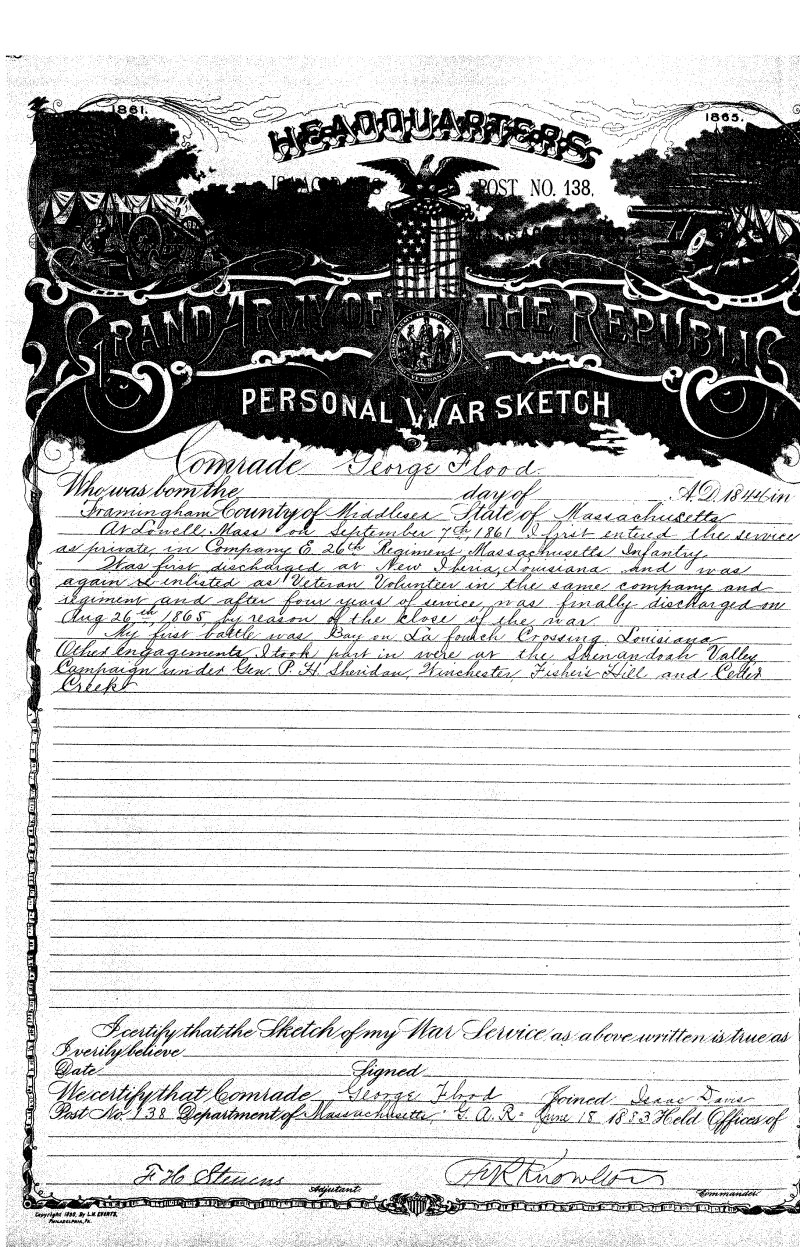 1861.
1865.
HEADQUARTERS
POST NO. 138.
GRAND ARMY OF THE REPUBLIC
PERSONAL WAR SKETCH
Comrade George Flood.
Who was born the day of A.D. 1844 in
Framingham County of Middlesex State of Massachusetts
At Lowell, Mass on September 7th 1861 I first entered the service
as private, in Company E. 26th Regiment, Massachusetts Infantry.
Was first discharged at New Iberia, Louisiana and was
again enlisted as Veteran Volunteer in the same company and
regiment and after four years of service, was finally discharged on
Aug 26th, 1865 by reason of the close of the war
My first battle was Bay on La fouch Crossing Louisiana
Other engagements I took part in were at the Shenandoah Valley
Campaign under Gen. P. H. Sheridan, Winchester, Fisher's Hill and Ceder
Creek
I certify that the Sketch of my War Service as above written is true as
I verily believe
Date Signed
We certify that Comrade George Flood Joined Isaac Davis
Post No. 138 Department of Massachusetts, G. A. R. June 18 1883 Held Offices of
F H Stevens
Knowlton
Adjutant.
Commander.
Copyright By L.H. EVERTS.
PHILADELPHIA, PA.